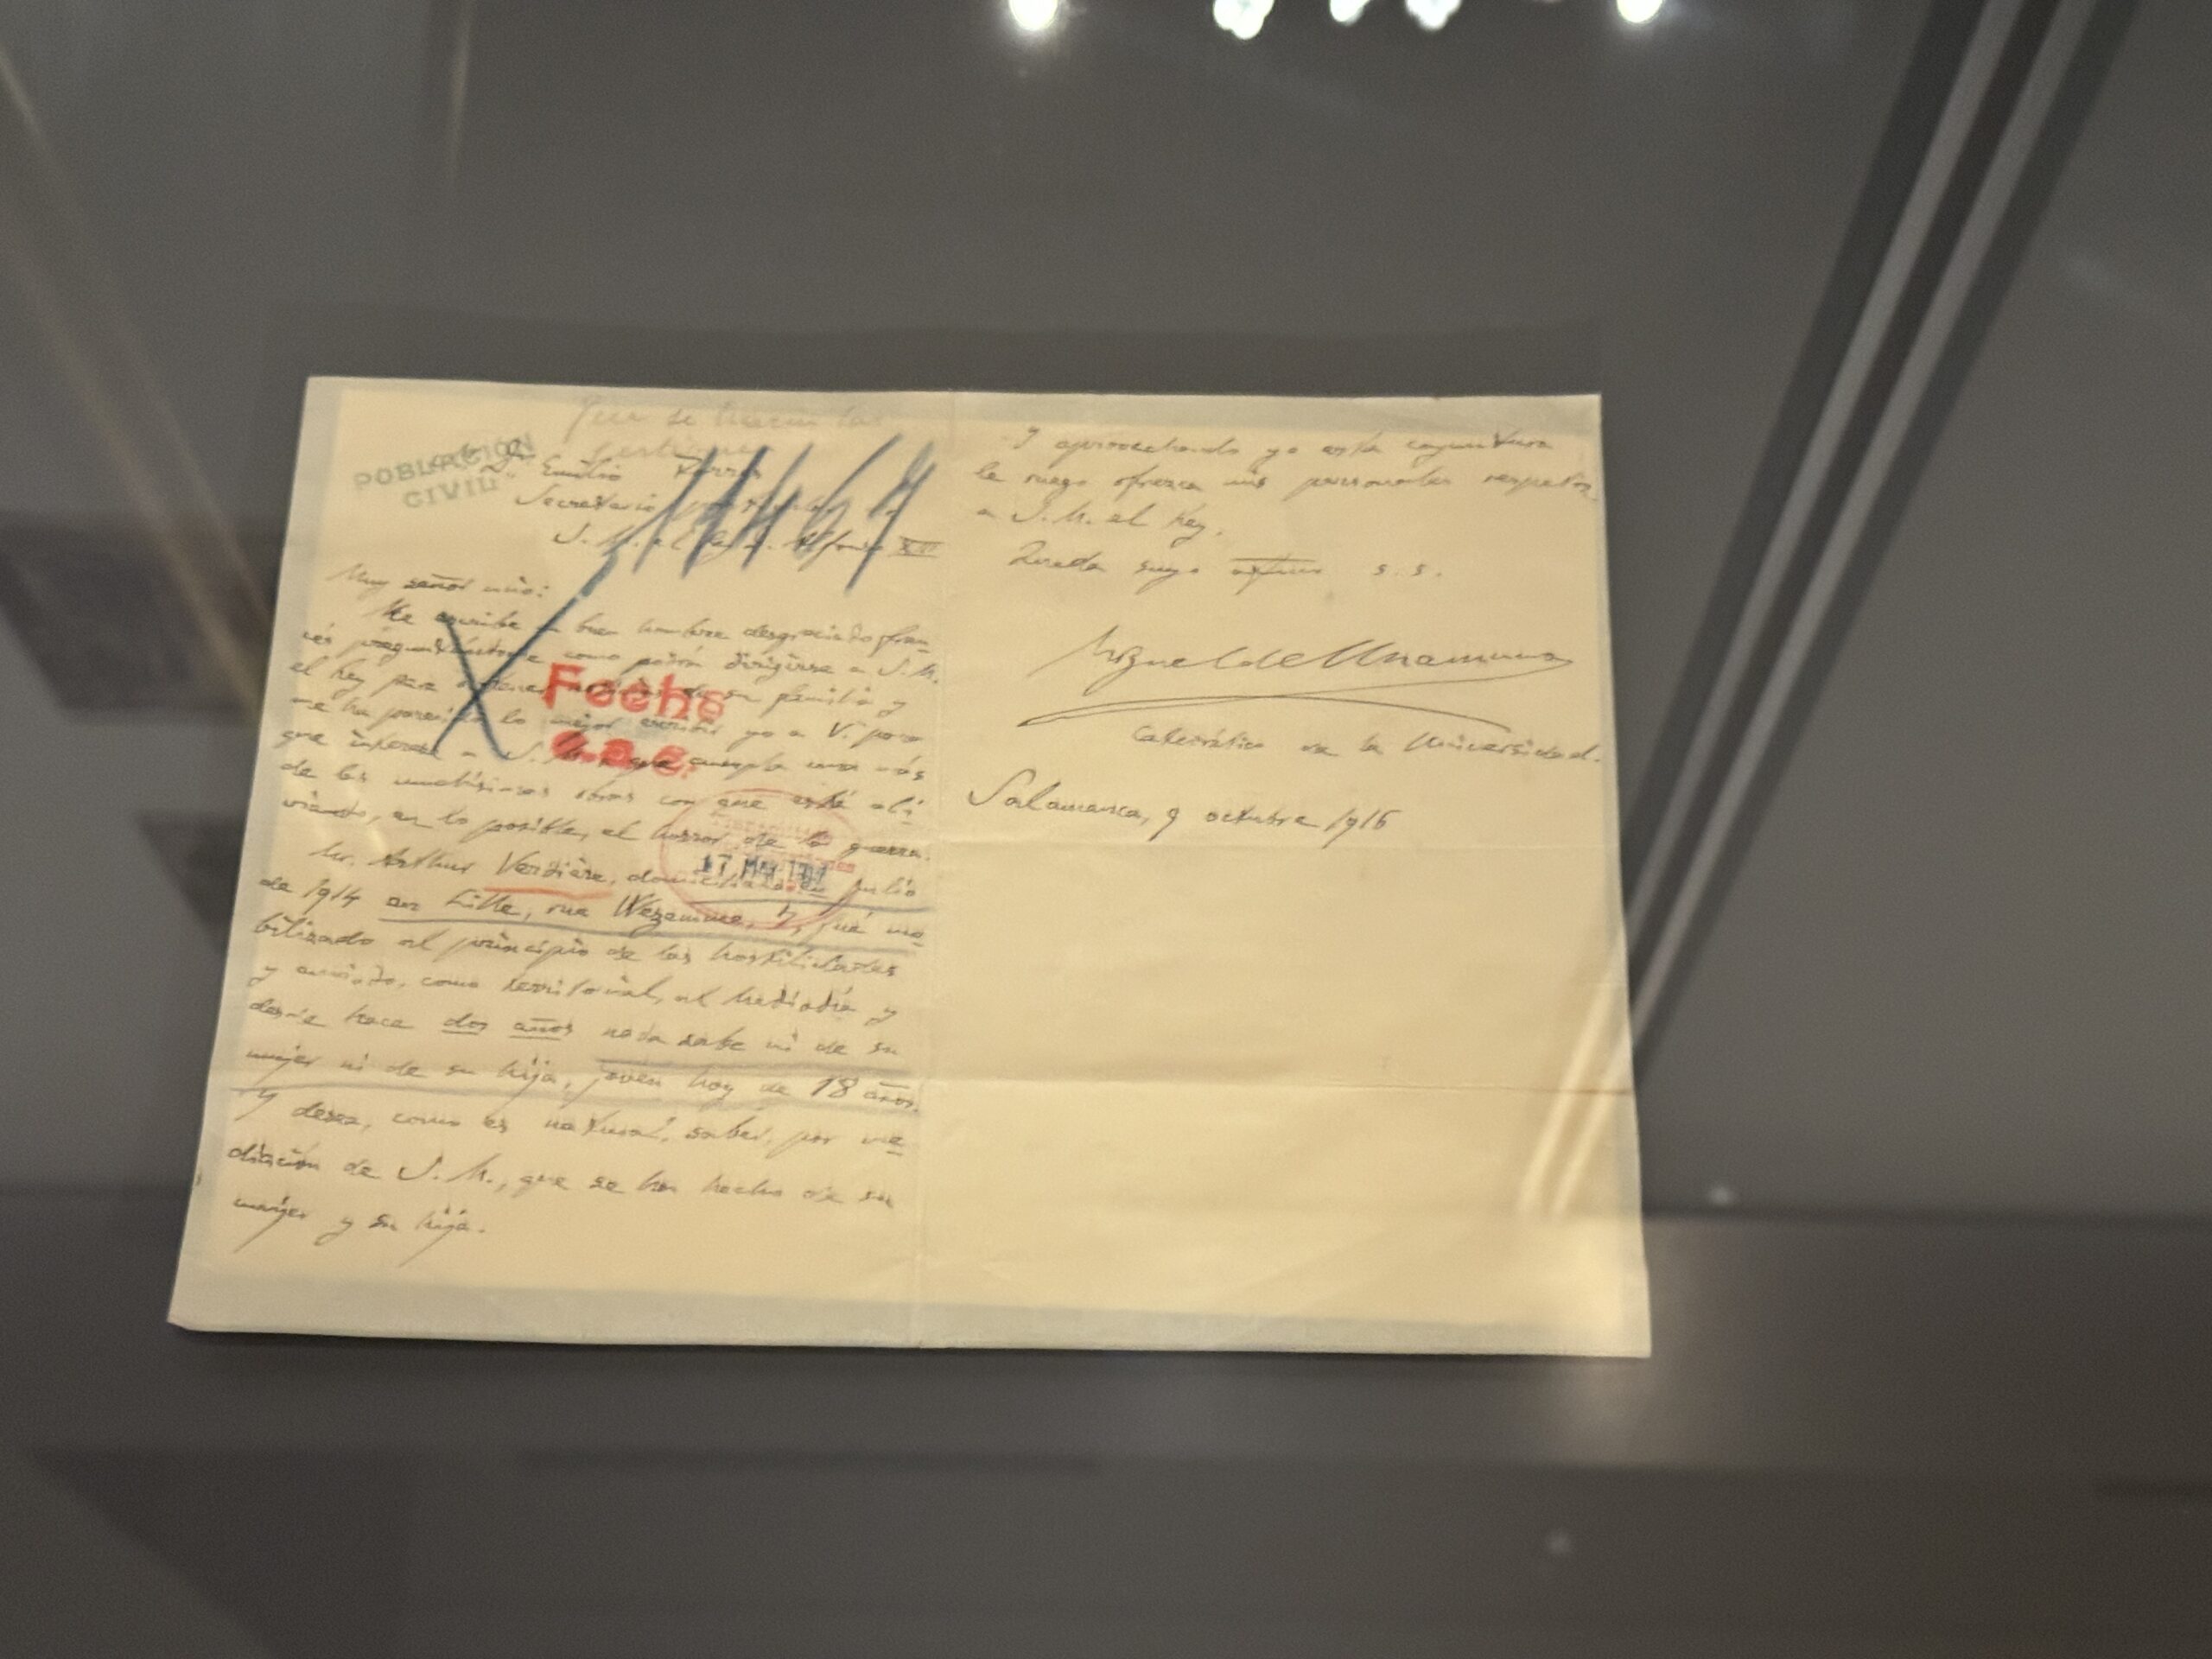 Que se hacen las
gestiones
POBLACION
CIVIL
Sr. D. Emilio Torres
Secretario
S. M. el Rey D. Alfonso XIII
Muy señor mio:
Me escribe un buen hombre desgraciado fran-
cés preguntándome como podrá dirigirse a S. M.
el Rey para obtener noticias de su familia y
me ha parecido lo mejor escribir yo a V. para
que interese a S. M. a que cumpla una más
de las muchísimas obras con que está ali-
viando, en lo posible, el horror de la guerra.
Fecho
17
Mr. Arthur Verdière, domiciliado en julio
de 1914 en Lille, rue 4, fué mo-
bilizado al principio de las hostilidades
y enviado, como territorial, al mediodía y
desde hace dos años nada sabe ni de su
mujer ni de su hija, joven hoy de 18 años.
Y desea, como es natural, saber, por me-
diación de S. M., que se ha hecho de su
mujer y su hija.
Y aprovechando yo esta coyuntura
le ruego ofrezca mis personales respetos
a S. M. el Rey.
Queda suyo afmo s. s.
Miguel de Unamuno
Catedrático de la Universidad.
Salamanca, 9 octubre 1916